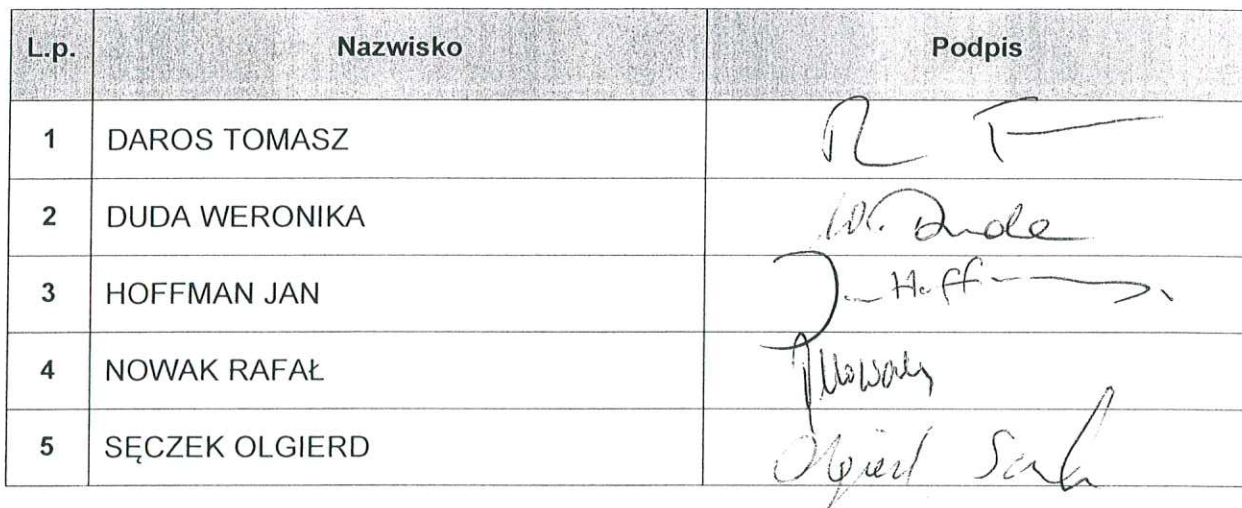 L.p. Nazwisko Podpis
1 DAROS TOMASZ
2 DUDA WERONIKA W. Duda
3 HOFFMAN JAN J. Hoffman
4 NOWAK RAFAŁ RNowak
5 SĘCZEK OLGIERD Olgierd